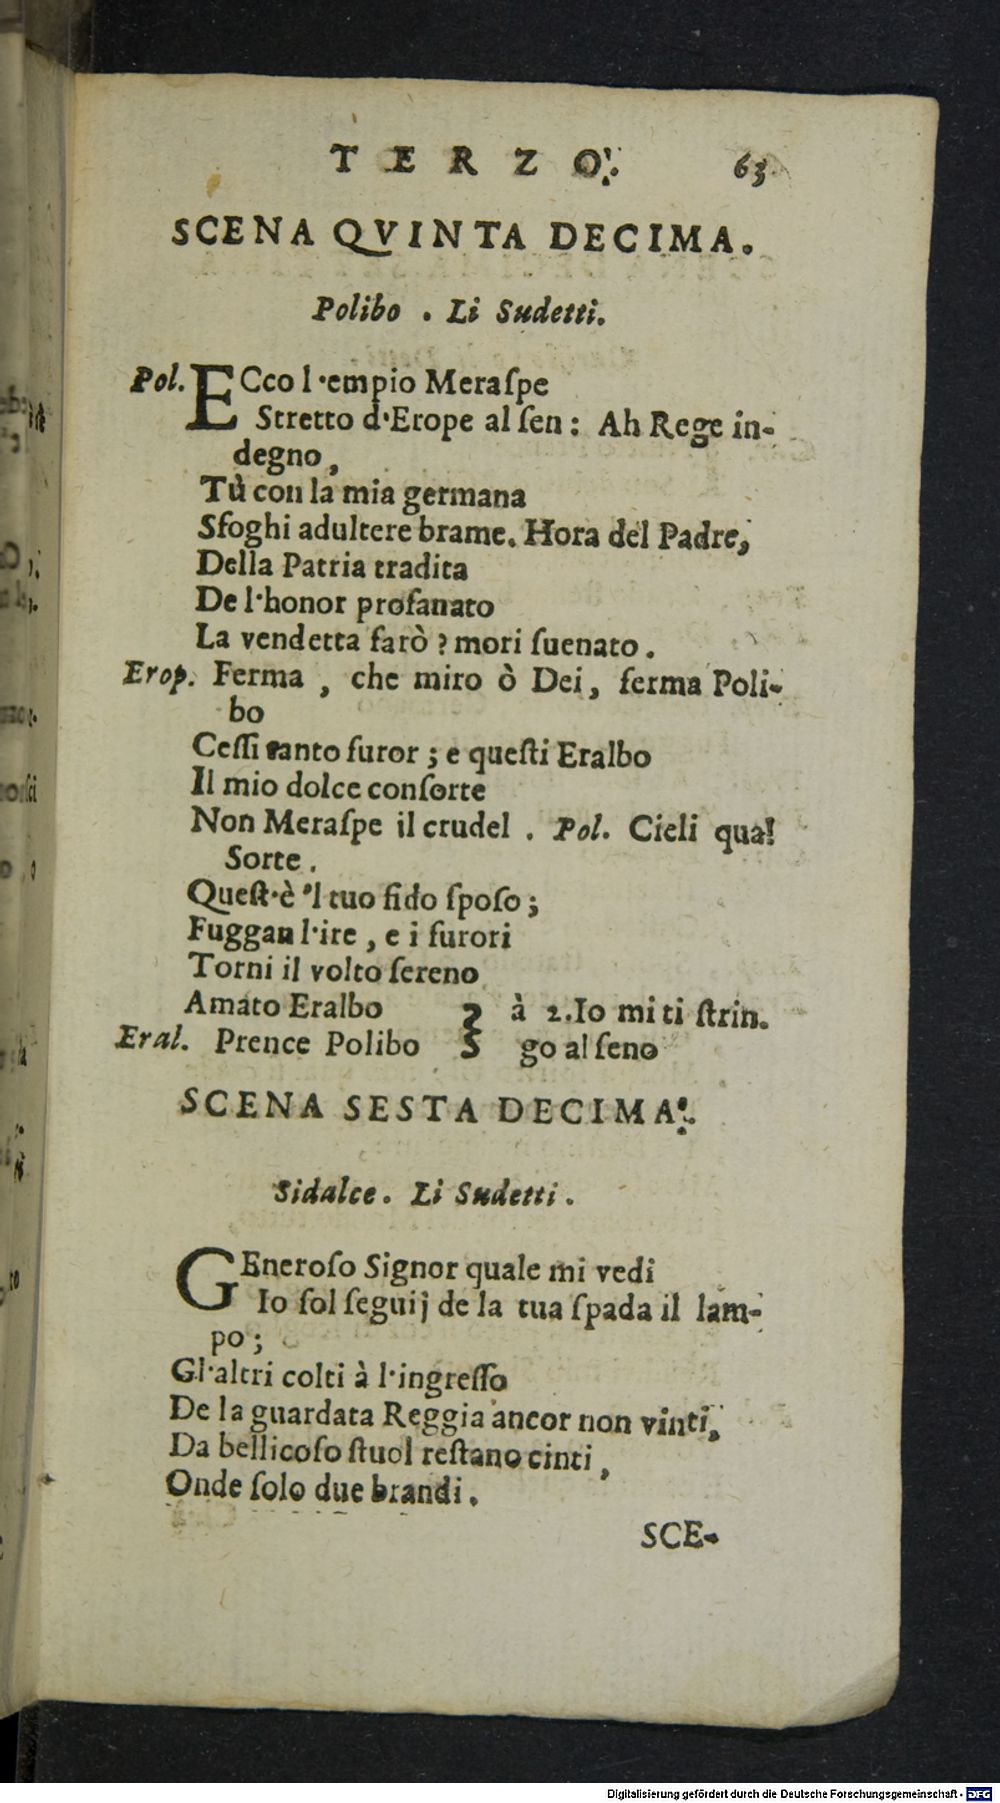 TERZO. 63
SCENA QVINTA DECIMA.
Polibo . Li Sudetti.
Pol. ECco l'empio Meraſpe
Stretto d'Erope al ſen : Ah Rege in-
degno,
Tù con la mia germana
Sfoghi adultere brame. Hora del Padre,
Della Patria tradita
De l'honor profanato
La vendetta farò ? mori ſuenato .
Erop. Ferma , che miro ò Dei, ferma Poli-
bo
Ceſſi tanto furor ; e queſti Eralbo
Il mio dolce conſorte
Non Meraſpe il crudel . Pol. Cieli qual
Sorte .
Queſt'è 'l tuo fido ſpoſo ;
Fuggan l'ire , e i furori
Torni il volto ſereno
Amato Eralbo } à 2. Io mi ti ſtrin.
Eral. Prence Polibo } go al ſeno
SCENA SESTA DECIMA.
Sidalce. Li Sudetti .
GEneroſo Signor quale mi vedi
Io ſol ſeguij de la tua ſpada il lam-
po ;
Gl'altri colti à l'ingreſſo
De la guardata Reggia ancor non vinti,
Da bellicoſo ſtuol reſtano cinti ,
Onde ſolo due brandi .
SCE-
Digitalisierung gefördert durch die Deutsche Forschungsgemeinschaft - DFG